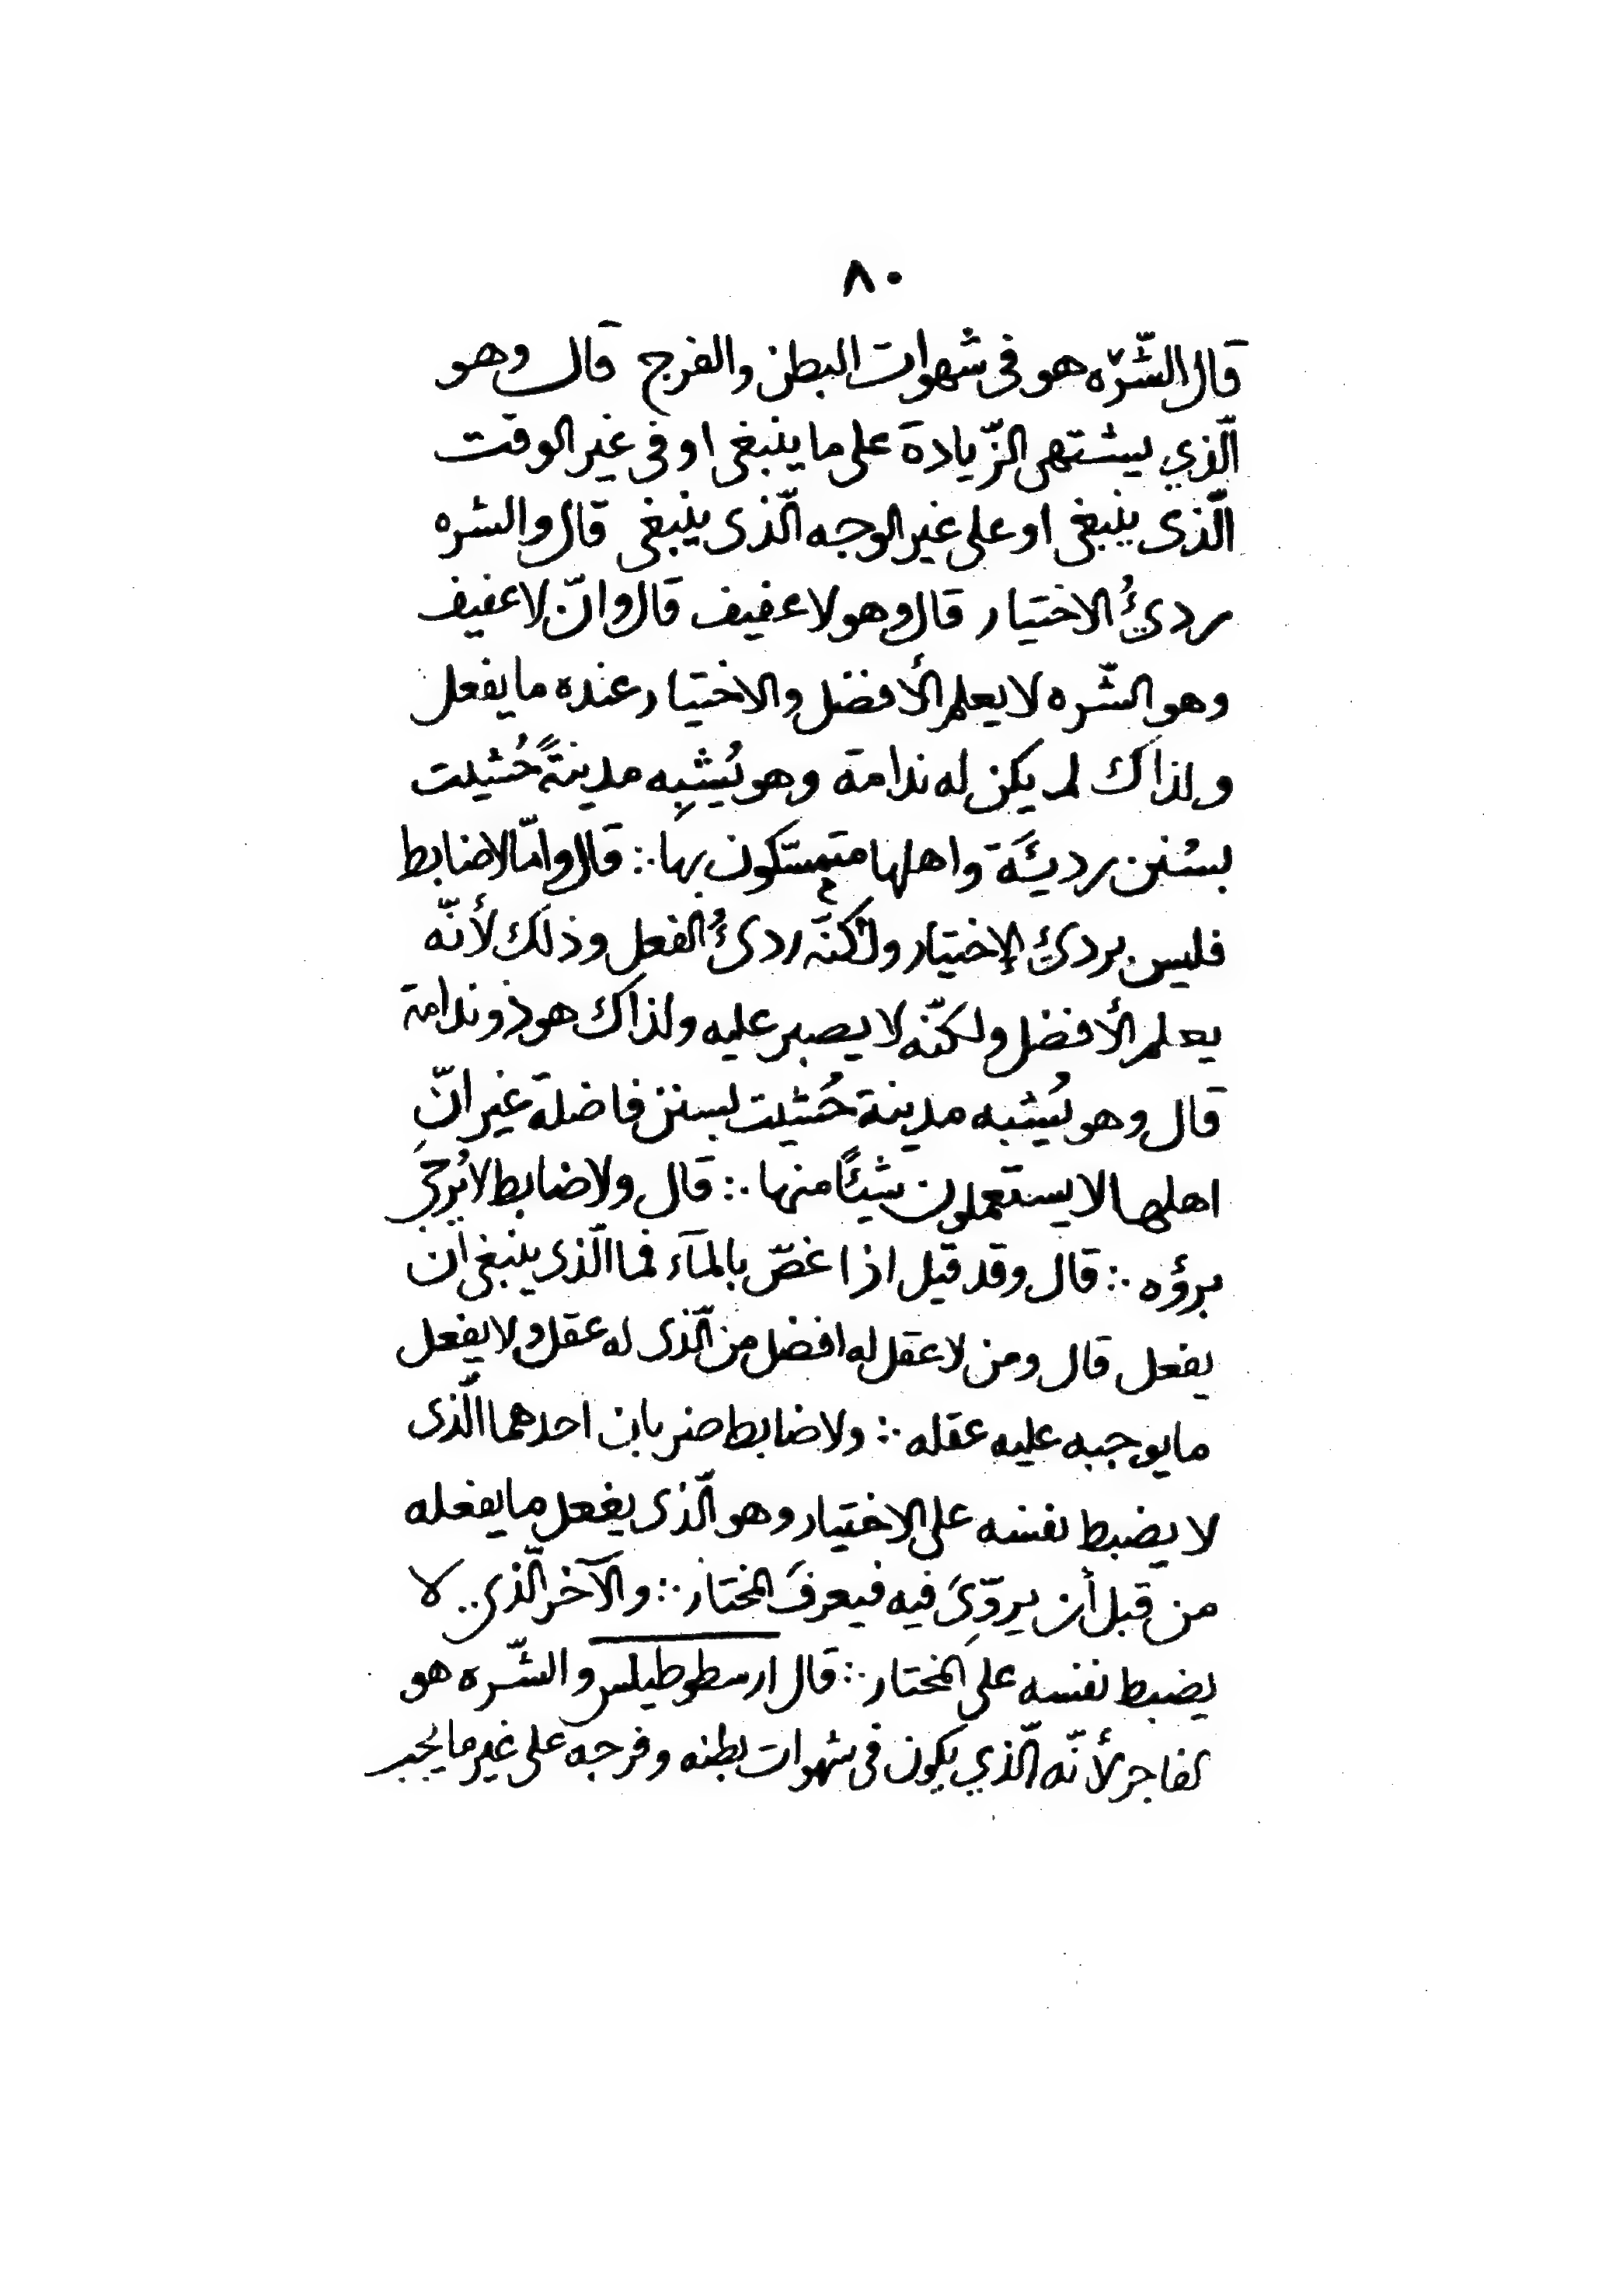 ٨٠
قال الشّره هو فى شهوات البطن والفرج قال وهو
الّذي يشتهى الزّيادة على ما ينبغى او فى غير الوقت
الّذى ينبغى او على غير الوجه الّذى ينبغى قال والشره
ردىُٔ الاختيار قال وهو لا عفيف قال وانّ لا عفيف
وهو الشّره لا يعلم الأفضل والاختيار عنده ما يفعل
ولذاك لم يكن له ندامة وهو يُشبِه مدينةً حُشيت
بسُنن رديئَة واهلها متمسّكون بها ∴ قال وامّا لا ضابط
فليس بردىٔ الإختيار ولكنّه ردىُٔ الفعل وذلك لأنّه
يعلم الأفضل ولكنّه لا يصبر عليه ولذاك هو ذو ندامة
قال وهو يُشبه مدينة حُشيت بسنن فاضلة غير انّ
اهلها لا يستعملون شيئًا منها ∴ قال ولا ضابط لا يُرجى
برؤه ∴ قال وقد قيل اذا غصّ بالمآء فما الّذى ينبغى أن
يفعل قال ومن لا عقل له افضل من الّذى له عقل ولا يفعل
ما يوجبه عليه عقله ∴ ولا ضابط ضربان احدهما الّذى
لا يضبط نفسه على الاختيار وهو الّذى يفعل ما يفعله
من قبل أن يروّىَ فيه فيعرفَ المختار ∴ والآخر الّذي لا
يضبط نفسه على المختار ∴ قال ارسطوطيلس والشّره هو
لفاجر لأنّه الّذي يكون فى شهوات بطنه وفرجه على غير ما يجب